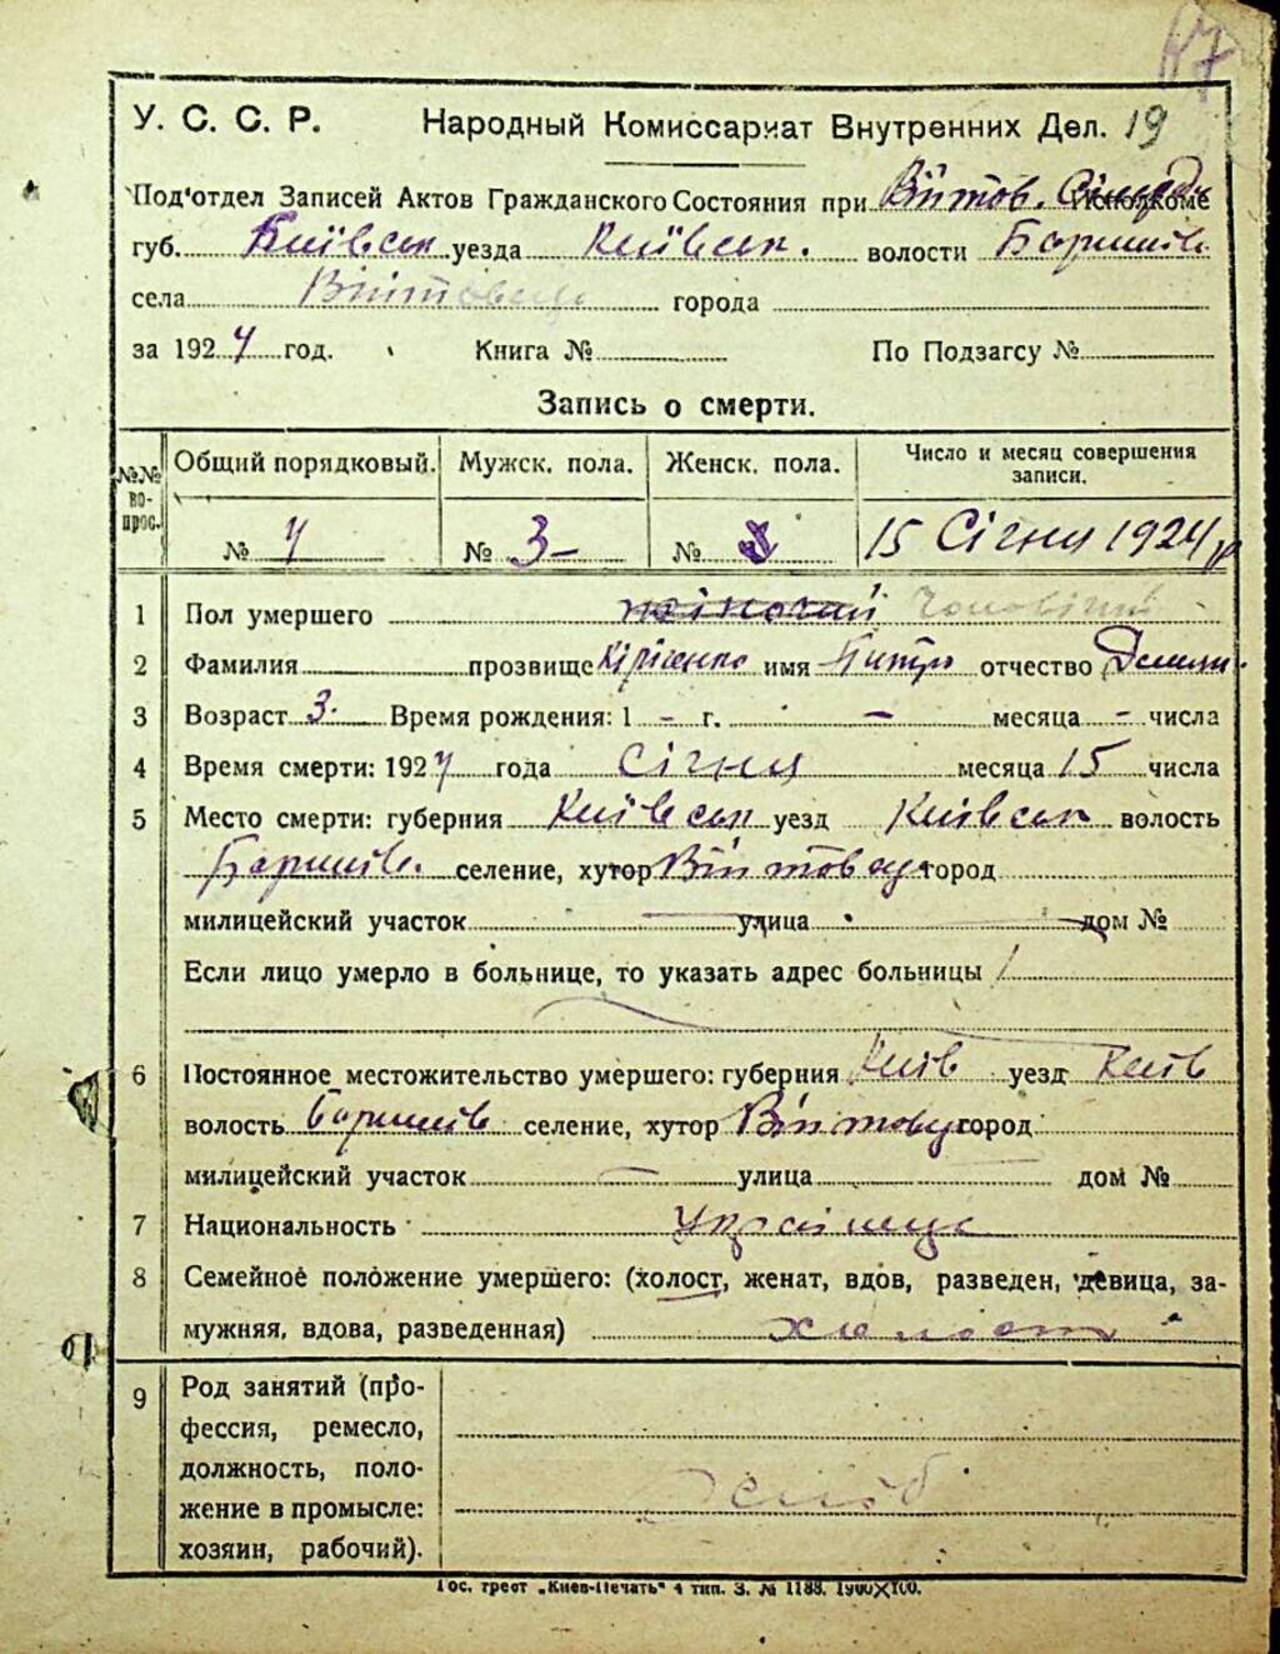 У. С. С. Р. Народный Комиссариат Внутренних Дел. 19
Под'отдел Записей Актов Гражданского Состояния при Війтов. Исполкоме
губ. Київськ уезда Київськ. волости Баришів.
села Війтовец города
за 1924 год. Книга № По Подзагсу №
Запись о смерти.
№№ вопрос. Общий порядковый. Мужск. пола. Женск. пола. Число и месяц совершения записи.
№ 4 № 3 – № 15 Січня 1924 р
1 Пол умершего жіночий Чоловічий
2 Фамилия прозвище Кірієнко имя Питро отчество Демян.
3 Возраст 3. Время рождения: 1 – г. – месяца – числа
4 Время смерти: 1924 года Січня месяца 15 числа
5 Место смерти: губерния Київськ уезд Київськ волость
Баришів. селение, хутор Війтовці город
милицейский участок улица дом №
Если лицо умерло в больнице, то указать адрес больницы
6 Постоянное местожительство умершего: губерния Київ уезд Київ
волость Баришів селение, хутор Війтовці город
милицейский участок улица дом №
7 Национальность Українец
8 Семейное положение умершего: (холост, женат, вдов, разведен, девица, за-
мужняя, вдова, разведенная) холост
9 Род занятий (про-
фессия, ремесло,
должность, поло-
жение в промысле:
хозяин, рабочий).
Гос. трест „Киев-Печать" 4 тип. З. № 1188. 1900X100.